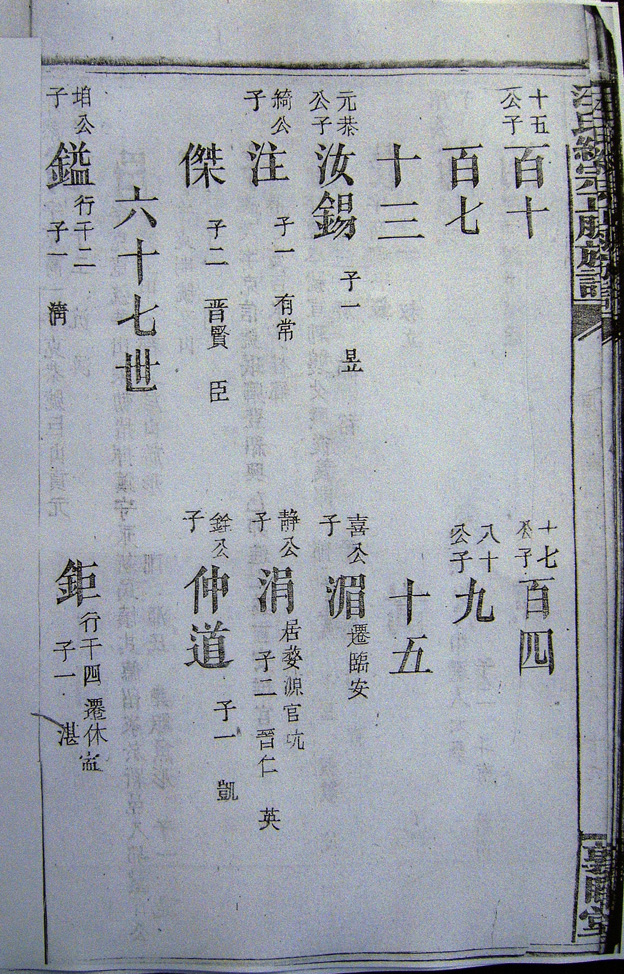 汪氏統宗正脈族譜
十五公子 百十
百七
十三
元恭公子 汝錫 子一 昱
綺公子 注 子一 有常
傑 子二 晋賢 臣
六十七世
垍公子 鎰 行千二 子一 㵾
十七公子 百四
八十公子 九
十五
喜公子 湄 遷臨安
静公子 涓 居婺源官坑 子二 官晋仁 英
銓公子 仲道 子一 凱
鉅 行千四 遷休 子一 湛